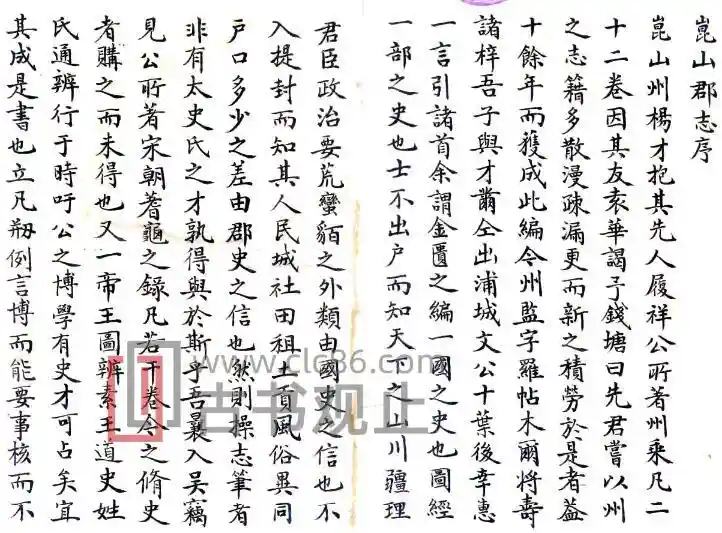 崑山郡志序
崑山州楊才抱其先人履祥公所著州乘凡二
十二卷因其友袁華謁予錢塘曰先君嘗以州
之志籍多散漫疎漏更而新之積勞於是者葢
十餘年而獲成此編令州監字羅帖木爾將壽
諸梓吾子與才爲仝出浦城文公十葉後幸惠
一言引諸首余謂金匱之編一國之史也圖經
一部之史也士不出户而知天下之山川疆理
君臣政治要荒蠻貊之外類由國史之信也不
入提封而知其人民城社田租土貢風俗異同
户口多少之差由郡史之信也然則操志筆者
非有太史氏之才孰得與於斯乎吾曩入吳竊
見公所著宋朝蓍龜之錄凡若干卷令之脩史
者購之而未得也又一帝王圖辨素王道史姓
氏通辨行于時吁公之博學有史才可占矣宜
其成是書也立凡剏例言博而能要事核而不
www.clc86.com
古书观止